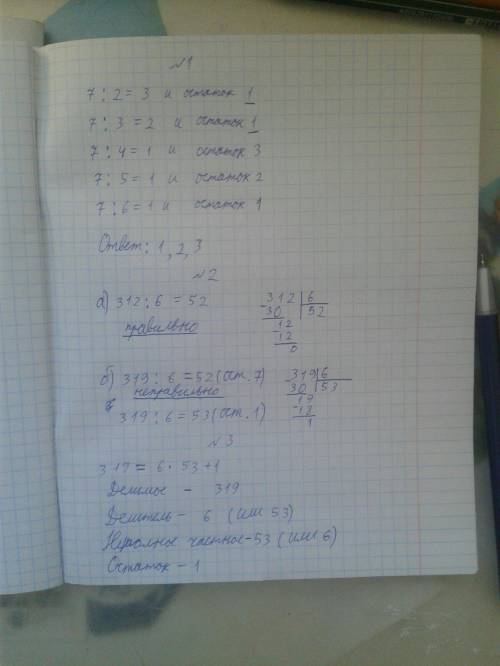 №1
7:2=3 и остаток 1
7:3=2 и остаток 1
7:4=1 и остаток 3
7:5=1 и остаток 2
7:6=1 и остаток 1
Ответ: 1, 2, 3
№2
а) 312:6=52
правильно
312 6
30 52
12
12
0
б) 319:6=52 (ост. 7)
неправильно
319:6=53 (ост. 1)
319 6
30 53
19
18
1
№3
319=6·53+1
Делимое - 319
Делитель - 6 (или 53)
Неполное частное - 53 (или 6)
Остаток - 1